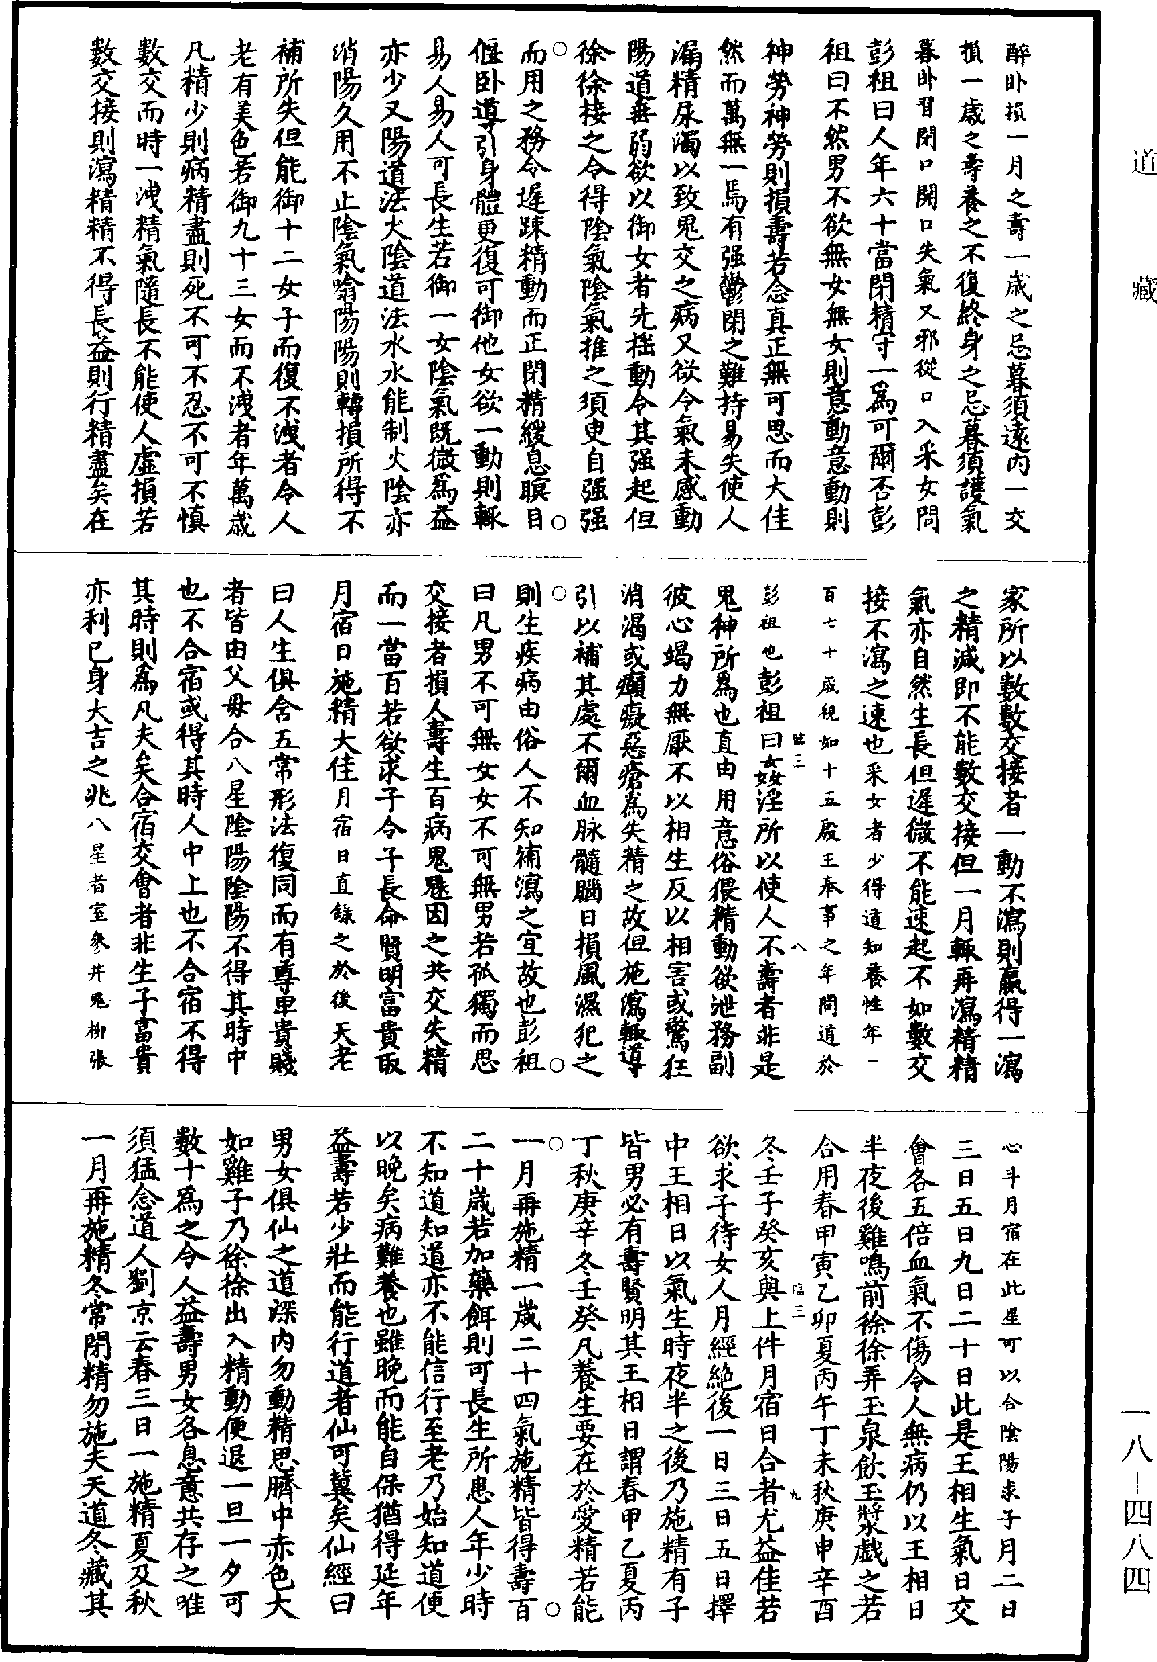 道藏
一八—四八四
醉卧損一月之壽一歲之忌暮須遠内一交
損一歲之壽養之不復終身之忌暮須護氣
暮卧習閉口開口失氣又邪從口入采女問
彭祖曰人年六十當閉精守一為可爾否彭
祖曰不然男不欲無女無女則意動意動則
神勞神勞則損壽若念真正無可思而大佳
然而萬無一焉有强鬱閉之難持易失使人
漏精尿濁以致鬼交之病又欲令氣未感動
陽道垂弱欲以御女者先揺動令其强起但
徐徐接之令得陰氣陰氣推之須臾自强强
而用之務令遲踈精動而正閉精緩息瞑目
偃卧導引身體更復可御他女欲一動則輙
易人易人可長生若御一女陰氣既微為益
亦少又陽道法火陰道法水水能制火陰亦
消陽久用不止陰氣噏陽陽則轉損所得不
補所失但能御十二女子而復不洩者令人
老有美色若御九十三女而不洩者年萬歲
凡精少則病精盡則死不可不忍不可不慎
數交而時一洩精氣隨長不能使人虚損若
數交接則瀉精精不得長益則行精盡矣在
家所以數數交接者一動不瀉則羸得一瀉
之精減即不能數交接但一月輙再瀉精精
氣亦自然生長但遲微不能速起不如數交
接不瀉之速也采女者少得道知養性年一
百七十歲視如十五殷王奉事之年問道於
彭祖也彭祖曰姦淫所以使人不壽者非是
鬼神所為也直由用意俗猥精動欲泄務副
彼心竭力無厭不以相生反以相害或驚狂
消渴或癲癡惡瘡為失精之故但施瀉輙導
引以補其處不爾血脉髓腦日損風濕犯之
則生疾病由俗人不知補瀉之宜故也彭祖
曰凡男不可無女女不可無男若孤獨而思
交接者損人壽生百病鬼魅因之共交失精
而一當百若欲求子令子長命賢明富貴取
月宿日施精大佳月宿日直録之於後天老
曰人生俱含五常形法復同而有尊卑貴賤
者皆由父母合八星陰陽陰陽不得其時中
也不合宿或得其時人中上也不合宿不得
其時則為凡夫矣合宿交會者非生子富貴
亦利已身大吉之兆八星者室參井鬼柳張
心斗月宿在此星可以合陰陽求子月二日
三日五日九日二十日此是王相生氣日交
會各五倍血氣不傷令人無病仍以王相日
半夜後雞鳴前徐徐弄玉泉飲玉漿戲之若
合用春甲寅乙卯夏丙午丁未秋庚申辛酉
冬壬子癸亥與上件月宿日合者尤益佳若
欲求子待女人月經絶後一日三日五日擇
中王相日以氣生時夜半之後乃施精有子
皆男必有壽賢明其王相日謂春甲乙夏丙
丁秋庚辛冬壬癸凡養生要在於愛精若能
一月再施精一歲二十四氣施精皆得壽百
二十歲若加藥餌則可長生所患人年少時
不知道知道亦不能信行至老乃始知道便
以晚矣病難養也雖晚而能自保猶得延年
益壽若少壯而能行道者仙可冀矣仙經曰
男女俱仙之道深内勿動精思臍中赤色大
如雞子乃徐徐出入精動便退一旦一夕可
數十為之令人益壽男女各息意共存之唯
須猛念道人劉京云春三日一施精夏及秋
一月再施精冬常閉精勿施夫天道冬藏其
臨三
八
臨三
九